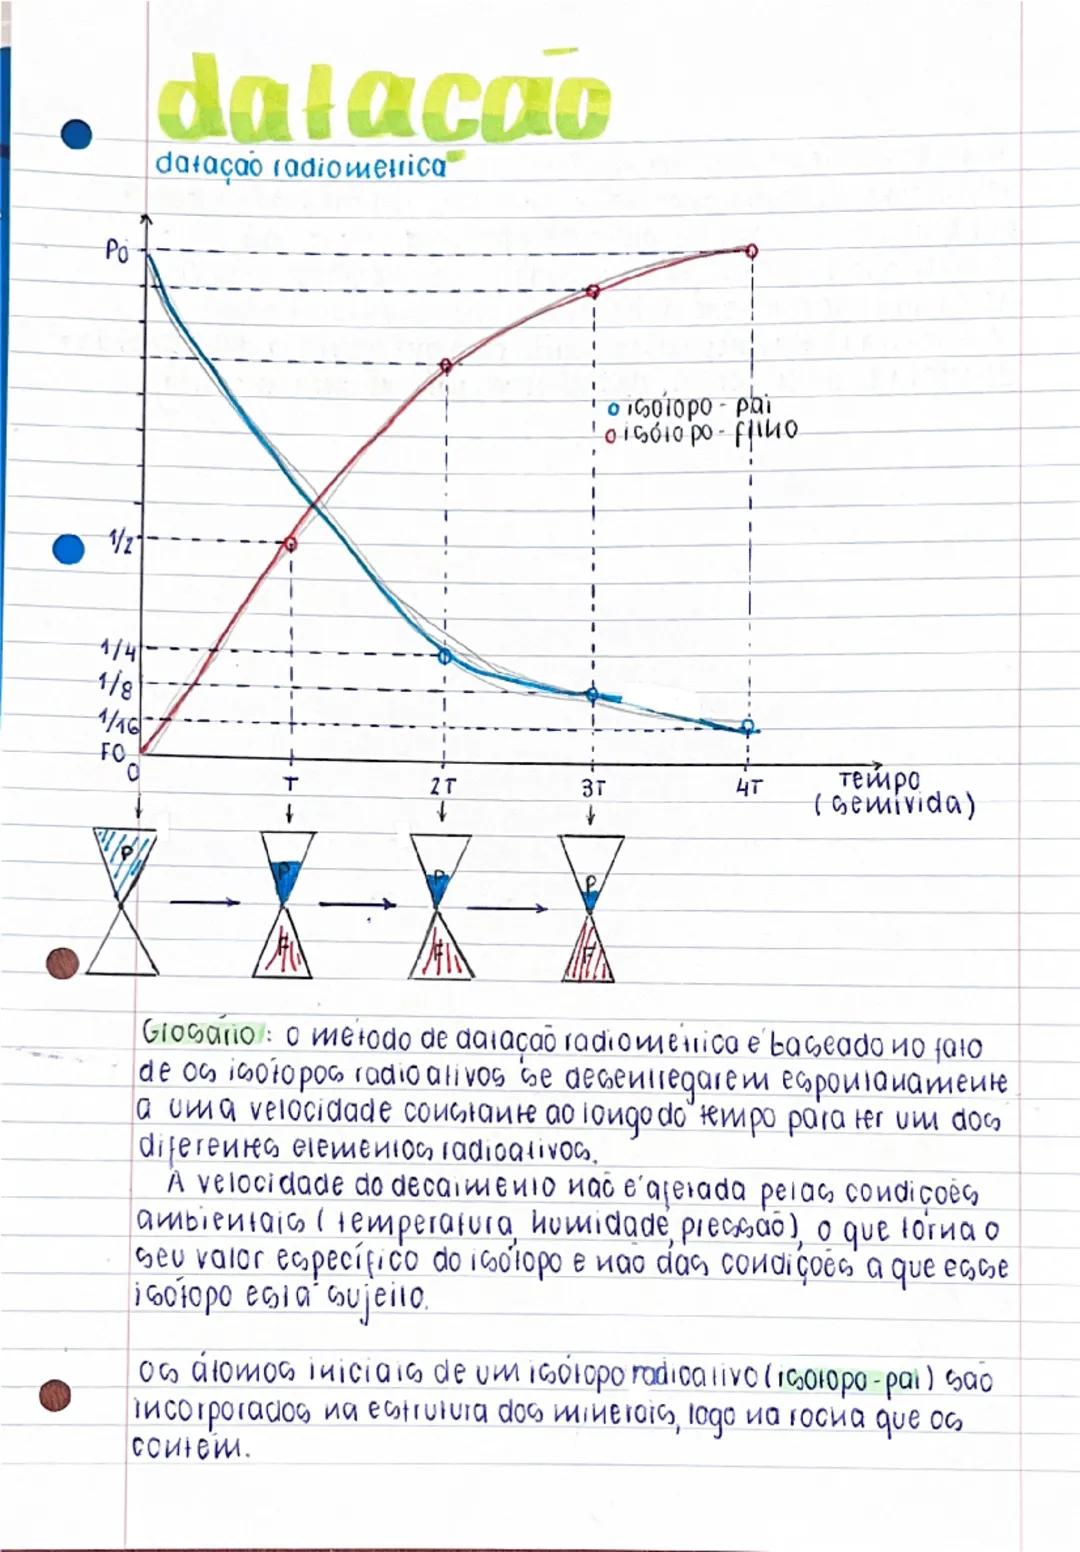 datação
datação radiometrica
P0
isótopo - pai
isótopo - filho
1/2
1/4
1/8
1/16
F0
0
T
2T
3T
4T
Tempo
(semivida)
P
P
P
P
F
F
F
Glosário: o método de datação radiométrica é baseado no fato
de os isótopos radioativos se desentregarem espontanamente
a uma velocidade constante ao longo do tempo para ter um dos
diferentes elementos radioativos.
A velocidade do decaimento não é afetada pelas condições
ambientais (temperatura, humidade, pressão), o que torna o
seu valor específico do isótopo e não das condições a que esse
isótopo está sujeito.
Os átomos iniciais de um isótopo radioativo (isótopo-pai) são
incorporados na estrutura dos minerais, logo na rocha que os
contém.